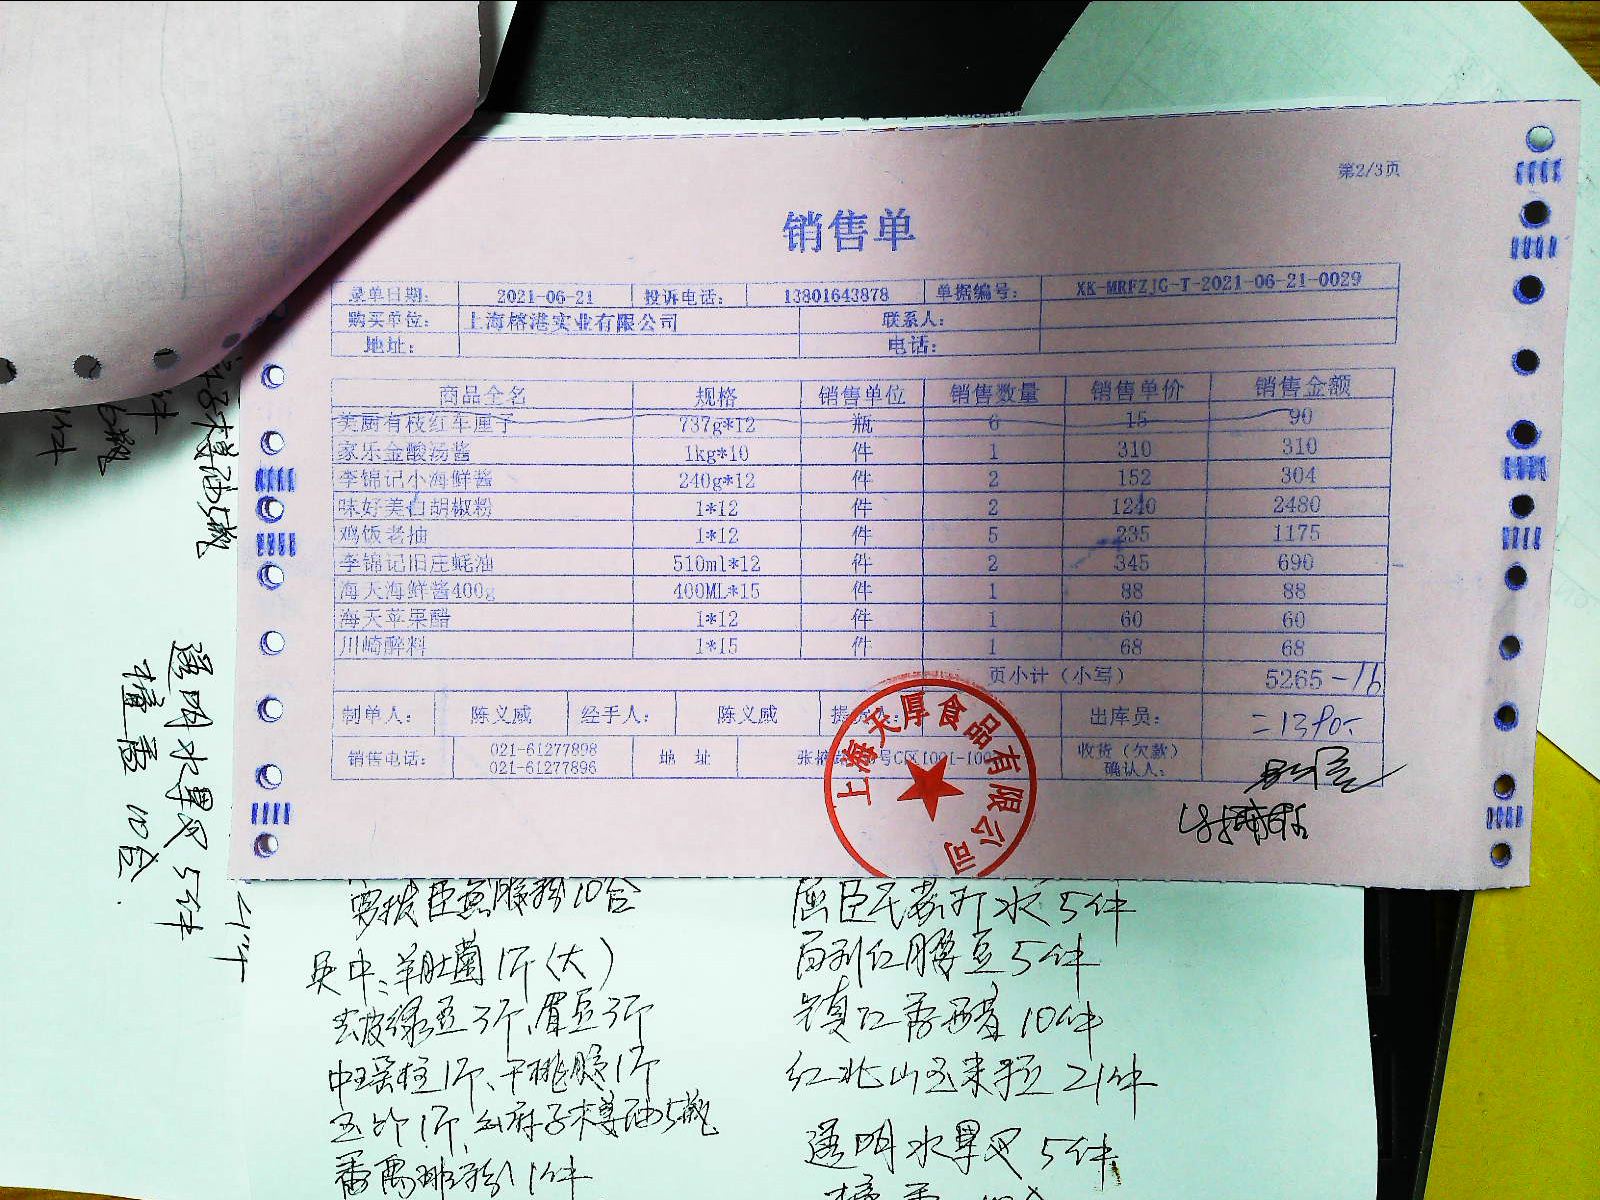 第2/3页
销售单
录单日期: 2021-06-21 投诉电话: 13801643878 单据编号: XK-MRFZJC-T-2021-06-21-0029
购买单位: 上海榕港实业有限公司 联系人:
地址: 电话:
商品全名 规格 销售单位 销售数量 销售单价 销售金额
美厨有枝红车厘子 737g*12 瓶 6 15 90
家乐金酸汤酱 1kg*10 件 1 310 310
李锦记小海鲜酱 240g*12 件 2 152 304
味好美白胡椒粉 1*12 件 2 1240 2480
鸡饭老抽 1*12 件 5 235 1175
李锦记旧庄蚝油 510ml*12 件 2 345 690
海天海鲜酱400g 400ML*15 件 1 88 88
海天苹果醋 1*12 件 1 60 60
川崎醉料 1*15 件 1 68 68
页小计（小写） 5265
制单人: 陈义威 经手人: 陈义威 出库员:
销售电话: 021-61277898 021-61277896 地 址 号C区1001 收货（欠款）确认人:
上海天厚食品有限公司
粉10合
羊肚菌1斤(大)
去皮绿豆3斤、眉豆3斤
中瑶柱1斤、干桃胶1斤
玉竹1斤 油5瓶
番禺 粉1件
屈臣氏苏打水5件
红腰豆5件
镇江香醋10件
玉米粒21件
透明水果叉5件
透明水果叉5件
10合
油5瓶
6瓶